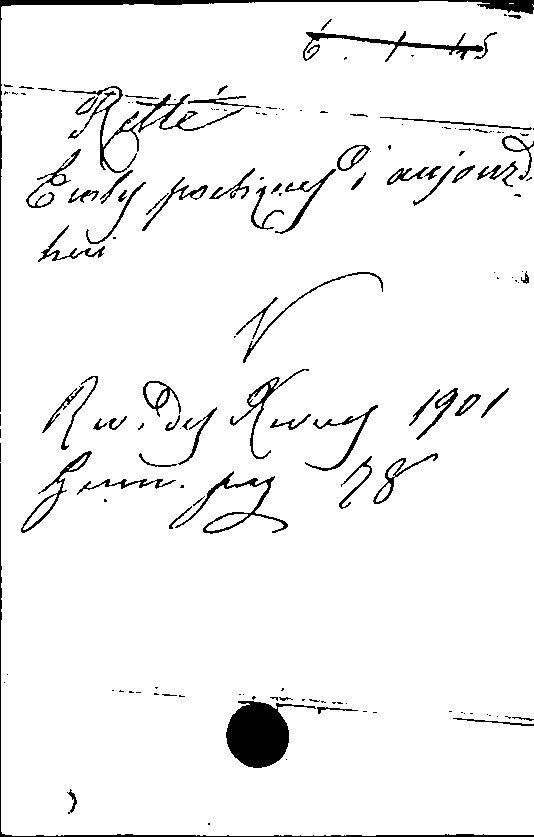 6. 1. 45
Retté
Ecoles poetiques d'aujourd
hui
V
Rev. des Revues 1901
Genn. pag 78